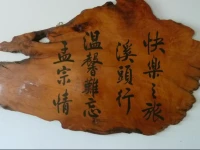 快樂之旅
溪頭行
溫馨難忘
孟宗情